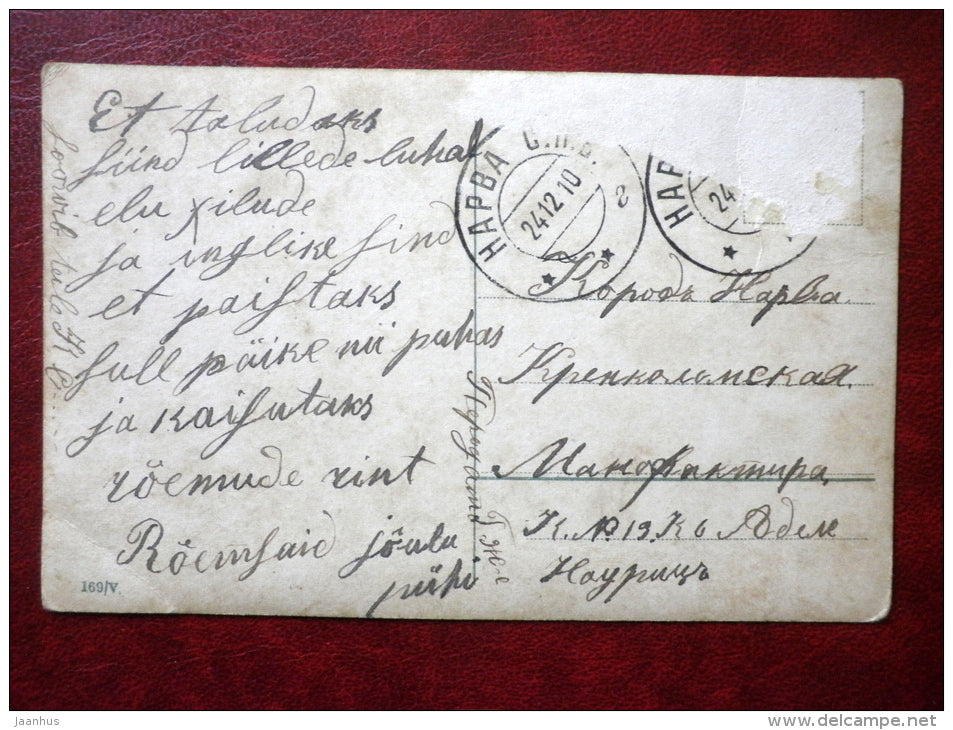 Et taludaks
siind lillede luhal
elu ilude
ja inglike sind
et paistaks
sull päike nii puhas
ja kaisutaks
rõemude rint
Rõemsaid jõulu
pühi
soovib teile
169/V.
НАРВА С.П.Б.
24 12 10
г
НАР
24
Городъ Нарва.
Кренкольмская.
Манофактира.
К. № 19. Къ Аделе
Наурицъ
Передать Гж-е
Jaanhus
www.delcampe.net